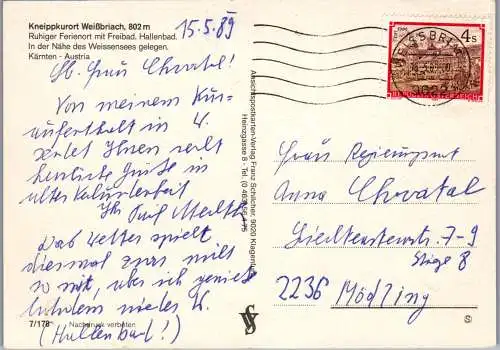 Kneippkurort Weißbriach, 802 m
Ruhiger Ferienort mit Freibad, Hallenbad.
In der Nähe des Weissensees gelegen.
Kärnten - Austria
15.5.89
Frau Chvatal!
Von meinem Kur-
aufenthalt in W.
Ihnen recht
herzliche Grüße in
alter Verbundenheit
Ihr
Das Wetter spielt
diesmal ganz
so mit, aber ich genieße
trotzdem wieder W.
(Hallenbad!)
7/178 Nachdruck verboten
Ansichtspostkarten-Verlag Franz Schilcher, 9020 Klagenfurt
Heinzgasse 8 - Tel. (0 463)
4 s
REPUBLIK ÖSTERREICH
WEISSBRIACH
Frau Regierungsrat
Anna Chvatal
Liechtensteinstr. 7-9
Stiege 8
2236 Mödling